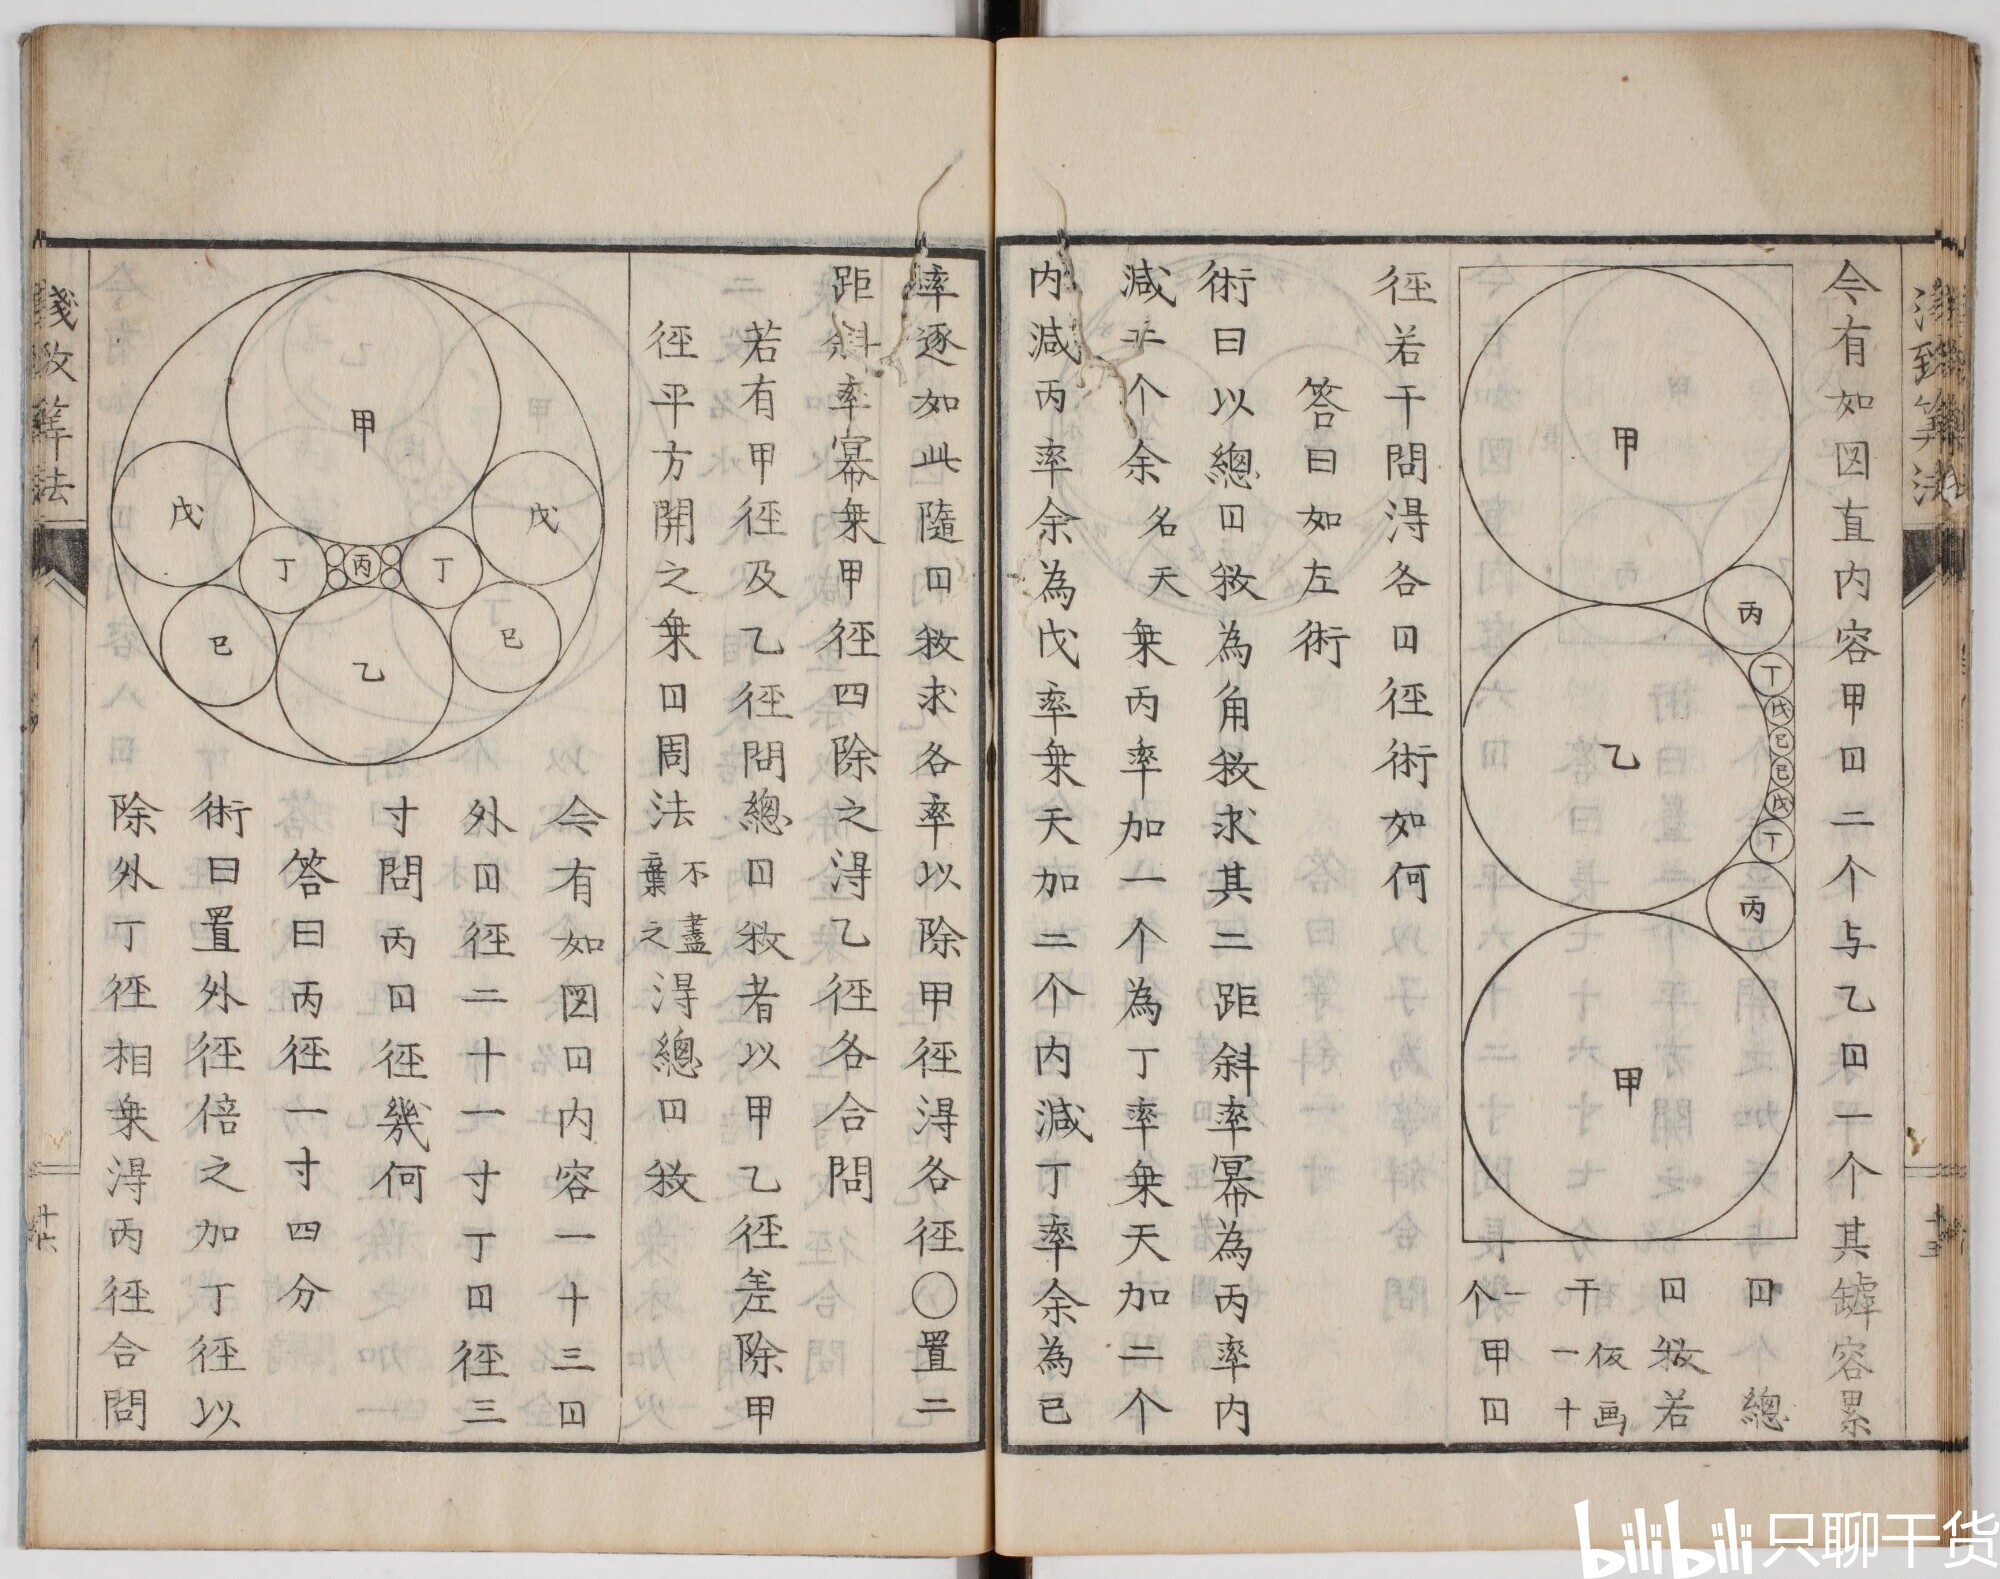 今有如図直内容甲囗二个与乙囗一个其罅容累
囗个総
囗数若
干仮画一十
一个甲囗
径若干問得各囗径術如何
答曰如左術
術曰以総囗数為角数求其二距斜率冪為丙率内
減一个余名天乗丙率加一个為丁率乗天加二个
内減丙率余為戊率乗天加二个内減丁率余為己
率逐如此随囗数求各率以除甲径得各径〇置二
距斜率冪乗甲径四除之得乙径各合問
若有甲径及乙径問総囗数者以甲乙径差除甲
径平方開之乗囗周法不尽棄之得総囗数
今有如図囗内容一十三囗
外囗径二十一寸丁囗径三
寸問丙囗径幾何
答曰丙径一寸四分
術曰置外径倍之加丁径以
除外丁径相乗得丙径合問
甲
丙
丁
戊
己
乙
己
戊
丁
丙
甲
甲
戊
戊
丁
丙
丁
己
乙
己
算法
十六
bilibili 只聊干货